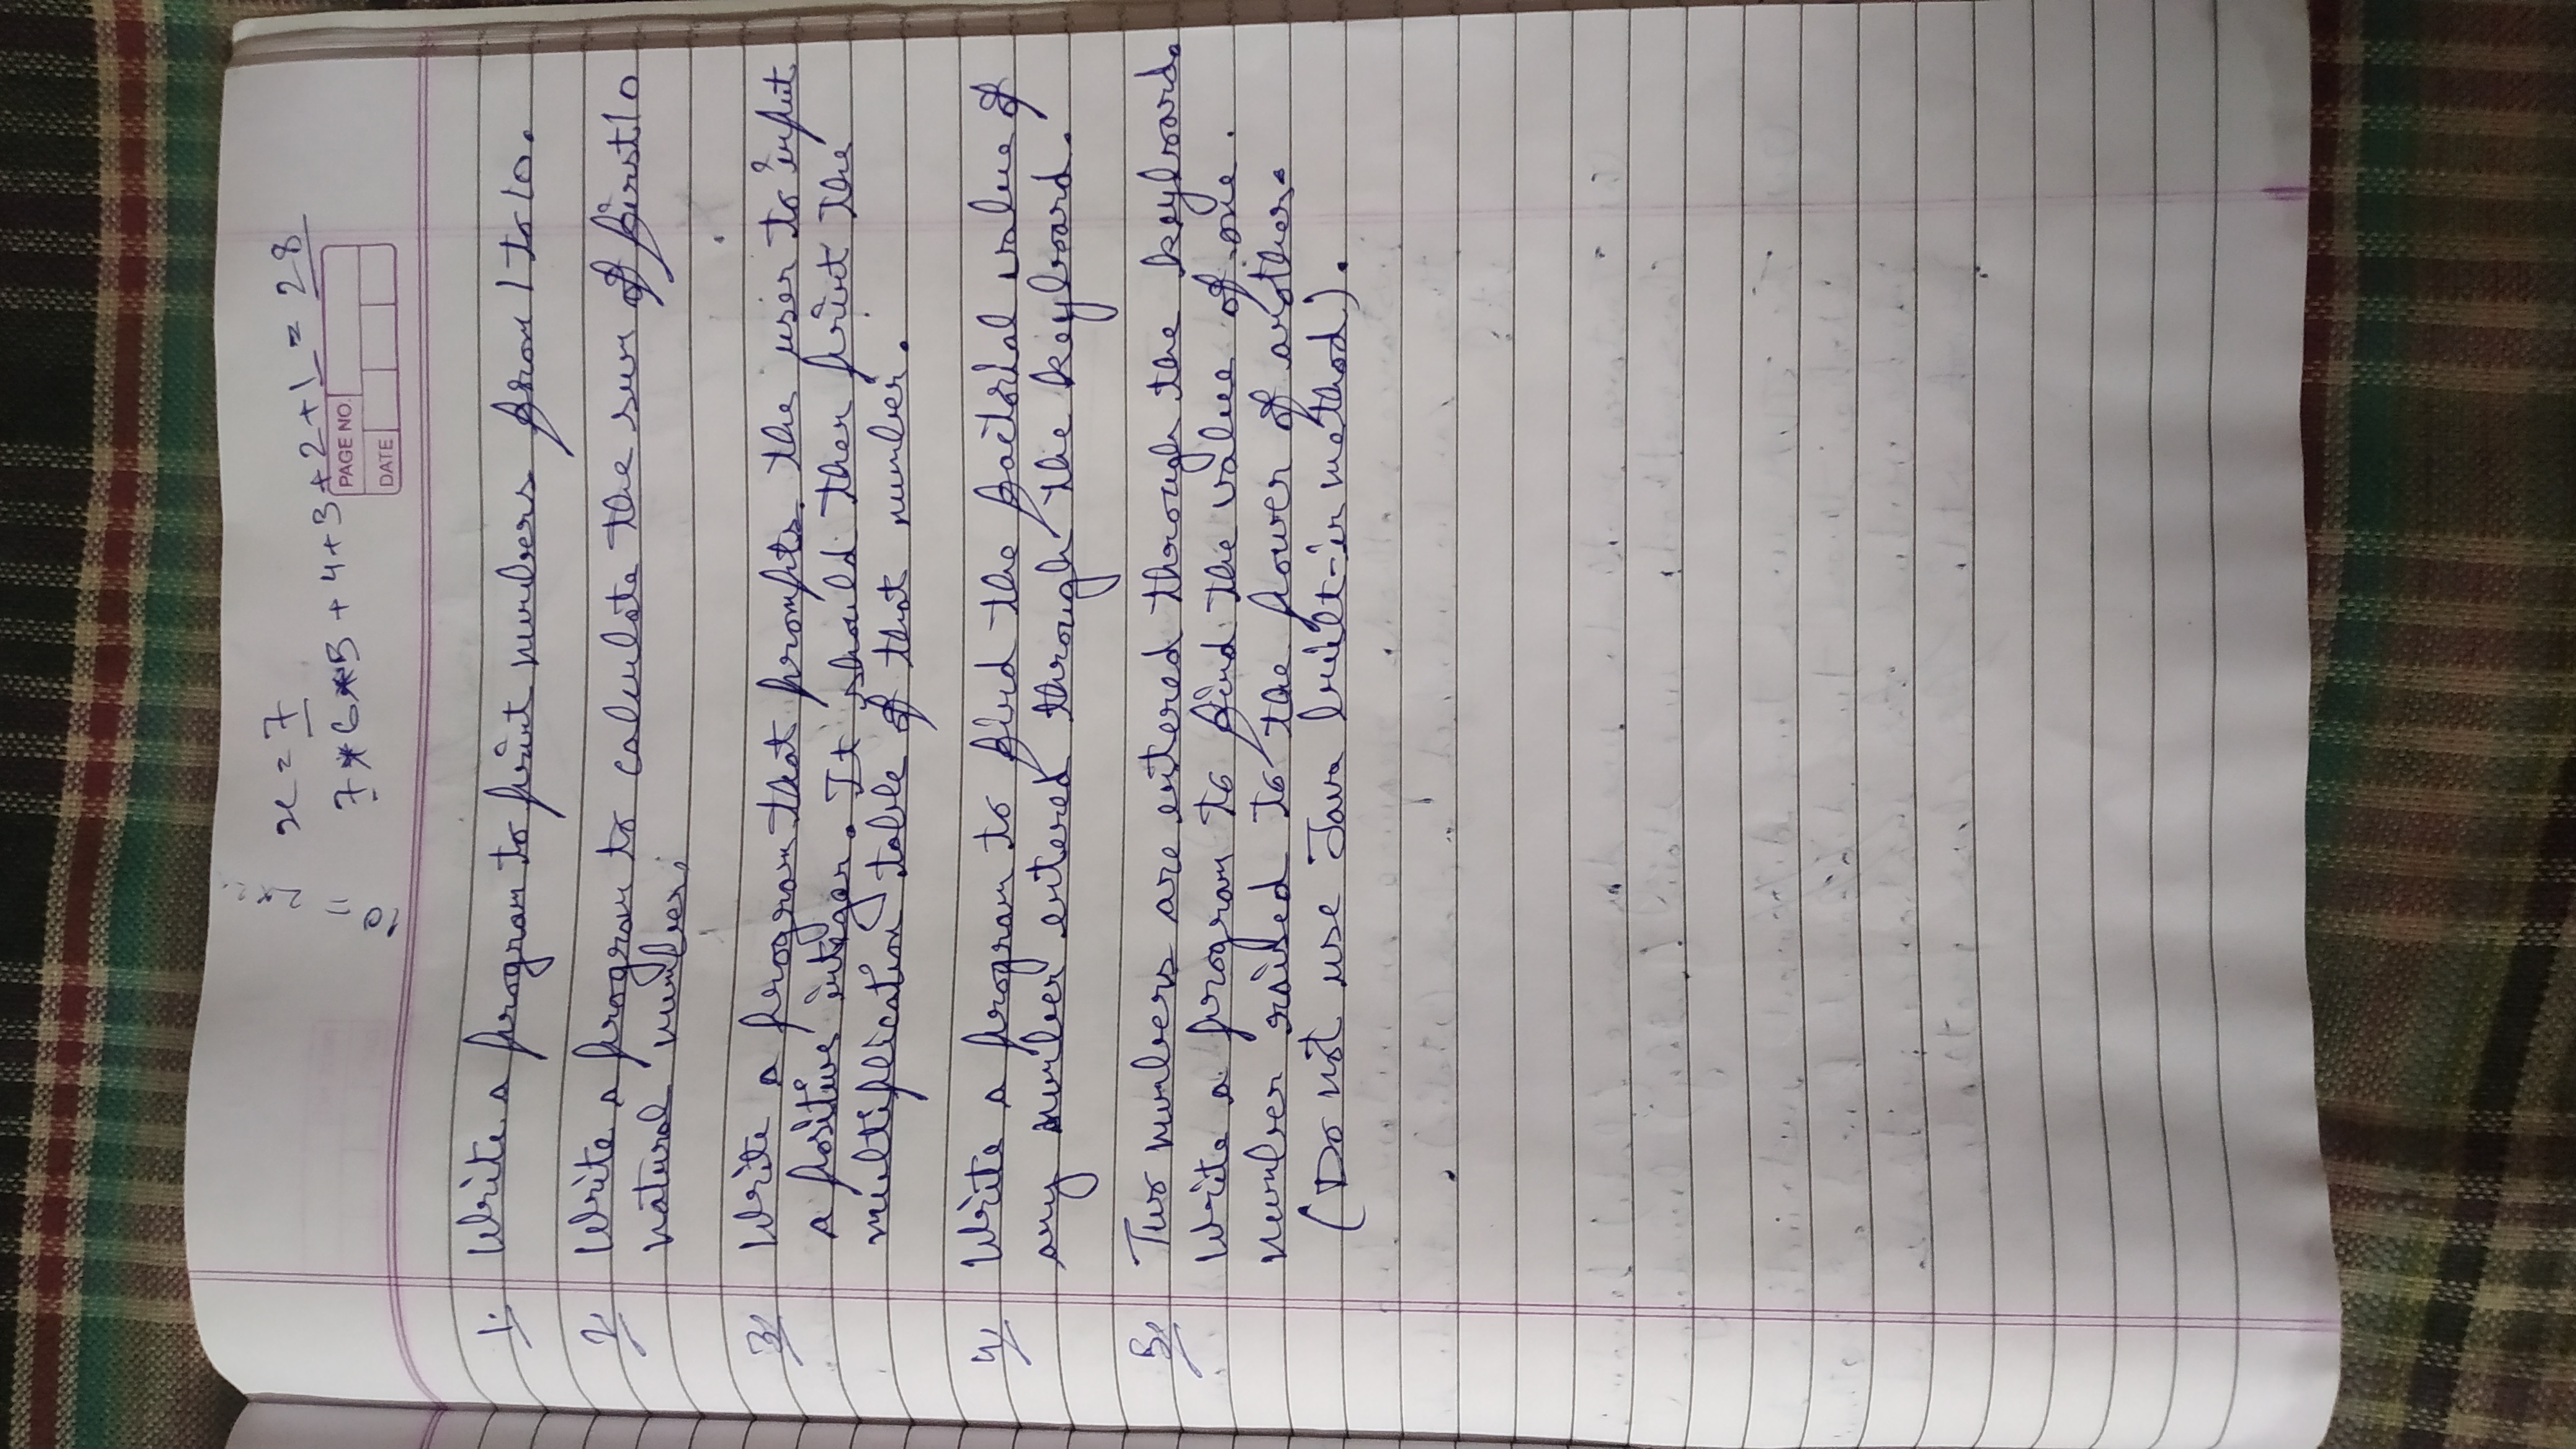 x = 7
7 * 6 * 5 + 4 + 3 + 2 + 1 = 28
10 =
PAGE NO.
DATE
1. Write a program to print numbers from 1 to 10.
2. Write a program to calculate the sum of first 10
natural number.
3. Write a program that prompts the user to input
a positive integer. It should then print the
multiplication table of that number.
4. Write a program to find the factorial value of
any number entered through the keyboard.
5. Two numbers are entered through the keyboard.
Write a program to find the value of one
number raised to the power of another.
(Do not use Java built-in method).